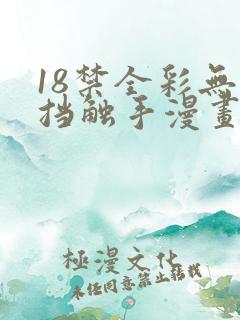 18禁全彩無
挡触手漫畫
極漫文化
未经同意禁止转载